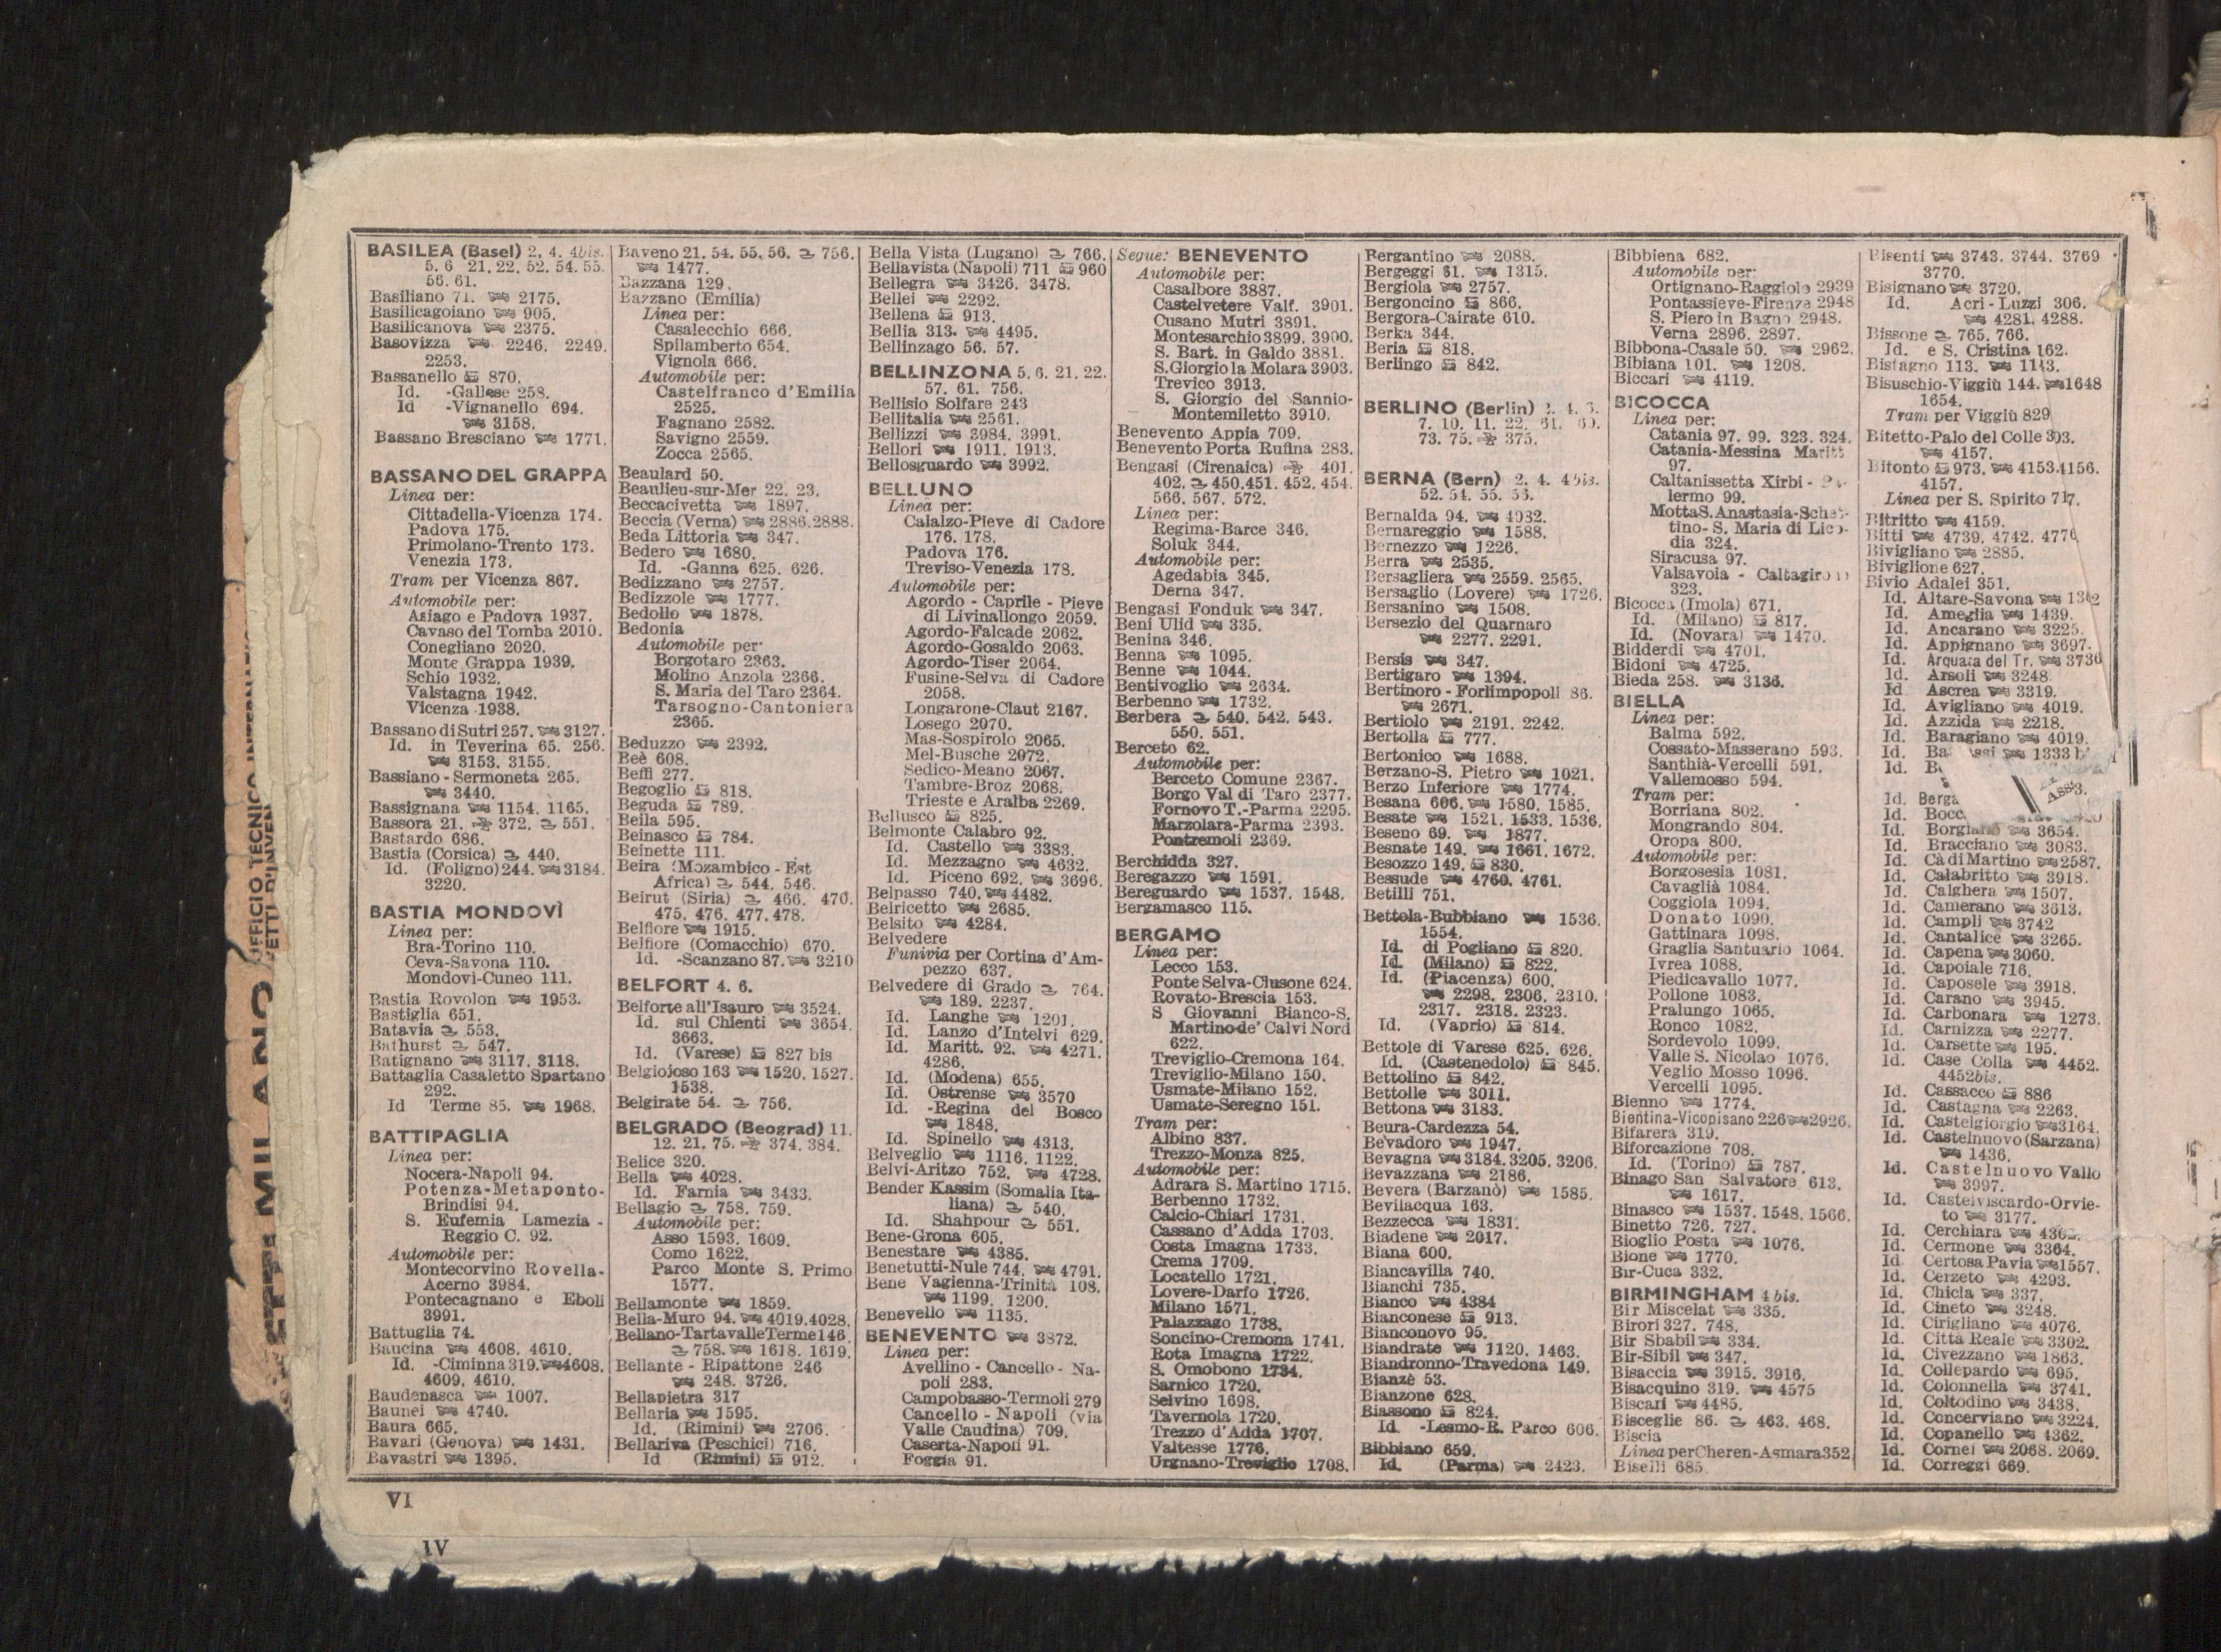 BASILEA (Basel) 2. 4. 4bis.
5. 6 21. 22. 52. 54. 55.
56. 61.
Basiliano 71. 2175.
Basilicagoiano 905.
Basilicanova 2375.
Basovizza 2246. 2249.
2253.
Bassanello 870.
Id. -Gallese 258.
Id -Vignanello 694.
3158.
Bassano Bresciano 1771.
BASSANO DEL GRAPPA
Linea per:
Cittadella-Vicenza 174.
Padova 175.
Primolano-Trento 173.
Venezia 173.
Tram per Vicenza 867.
Automobile per:
Asiago e Padova 1937.
Cavaso del Tomba 2010.
Conegliano 2020.
Monte Grappa 1939.
Schio 1932.
Valstagna 1942.
Vicenza 1938.
Bassano di Sutri 257. 3127.
Id. in Teverina 65. 256.
3153. 3155.
Bassiano - Sermoneta 265.
3440.
Bassignana 1154. 1165.
Bassora 21. 372. 551.
Bastardo 686.
Bastia (Corsica) 440.
Id. (Foligno) 244. 3184.
3220.
BASTIA MONDOVÌ
Linea per:
Bra-Torino 110.
Ceva-Savona 110.
Mondovì-Cuneo 111.
Bastia Rovolon 1953.
Bastiglia 651.
Batavia 553.
Bathurst 547.
Batignano 3117. 3118.
Battaglia Casaletto Spartano
292.
Id Terme 85. 1968.
BATTIPAGLIA
Linea per:
Nocera-Napoli 94.
Potenza-Metaponto-
Brindisi 94.
S. Eufemia Lamezia -
Reggio C. 92.
Automobile per:
Montecorvino Rovella-
Acerno 3984.
Pontecagnano e Eboli
3991.
Battuglia 74.
Baucina 4608. 4610.
Id. -Ciminna 319. 4608.
4609. 4610.
Baudenasca 1007.
Baunei 4740.
Baura 665.
Bavari (Genova) 1431.
Bavastri 1395.
Baveno 21. 54. 55. 56. 756.
1477.
Bazzana 129.
Bazzano (Emilia)
Linea per:
Casalecchio 666.
Spilamberto 654.
Vignola 666.
Automobile per:
Castelfranco d'Emilia
2525.
Fagnano 2582.
Savigno 2559.
Zocca 2565.
Beaulard 50.
Beaulieu-sur-Mer 22. 23.
Beccacivetta 1897.
Beccia (Verna) 2886. 2888.
Beda Littoria 347.
Bedero 1680.
Id. -Ganna 625. 626.
Bedizzano 2757.
Bedizzole 1777.
Bedollo 1878.
Bedonia
Automobile per:
Borgotaro 2363.
Molino Anzola 2366.
S. Maria del Taro 2364.
Tarsogno-Cantoniera
2365.
Beduzzo 2392.
Beè 608.
Beffi 277.
Begoglio 818.
Beguda 789.
Beila 595.
Beinasco 784.
Beinette 111.
Beira (Mozambico - Est
Africa) 544. 546.
Beirut (Siria) 466. 470.
475. 476. 477. 478.
Belfiore 1915.
Belfiore (Comacchio) 670.
Id. -Scanzano 87. 3210
BELFORT 4. 6.
Belforte all'Isauro 3524.
Id. sul Chienti 3654.
3663.
Id. (Varese) 827 bis
Belgiojoso 163 1520. 1527.
1538.
Belgirate 54. 756.
BELGRADO (Beograd) 11.
12. 21. 75. 374. 384.
Belice 320.
Bella 4028.
Id. Farnia 3433.
Bellagio 758. 759.
Automobile per:
Asso 1593. 1609.
Como 1622.
Parco Monte S. Primo
1577.
Bellamonte 1859.
Bella-Muro 94. 4019. 4028.
Bellano-Tartavalle Terme 146.
758. 1618. 1619.
Bellante - Ripattone 246
248. 3726.
Bellapietra 317
Bellaria 1595.
Id. (Rimini) 2706.
Bellariva (Peschici) 716.
Id (Rimini) 912.
Bella Vista (Lugano) 766.
Bellavista (Napoli) 711 960
Bellegra 3426. 3478.
Bellei 2292.
Bellena 913.
Bellia 313. 4495.
Bellinzago 56. 57.
BELLINZONA 5. 6. 21. 22.
57. 61. 756.
Bellisio Solfare 243
Bellitalia 2561.
Bellizzi 3984. 3991.
Bellori 1911. 1913.
Bellosguardo 3992.
BELLUNO
Linea per:
Calalzo-Pieve di Cadore
176. 178.
Padova 176.
Treviso-Venezia 178.
Automobile per:
Agordo - Caprile - Pieve
di Livinallongo 2059.
Agordo-Falcade 2062.
Agordo-Gosaldo 2063.
Agordo-Tiser 2064.
Fusine-Selva di Cadore
2058.
Longarone-Claut 2167.
Losego 2070.
Mas-Sospirolo 2065.
Mel-Busche 2072.
Sedico-Meano 2067.
Tambre-Broz 2068.
Trieste e Aralba 2269.
Bellusco 825.
Belmonte Calabro 92.
Id. Castello 3383.
Id. Mezzagno 4632.
Id. Piceno 692. 3696.
Belpasso 740. 4482.
Belricetto 2685.
Belsito 4284.
Belvedere
Funivia per Cortina d'Am-
pezzo 637.
Belvedere di Grado 764.
189. 2237.
Id. Langhe 1201.
Id. Lanzo d'Intelvi 629.
Id. Maritt. 92. 4271.
4286.
Id. (Modena) 655.
Id. Ostrense 3570
Id. -Regina del Bosco
1848.
Id. Spinello 4313.
Belveglio 1116. 1122.
Belvi-Aritzo 752. 4728.
Bender Kassim (Somalia Ita-
liana) 540.
Id. Shahpour 551.
Bene-Grona 605.
Benestare 4385.
Benetutti-Nule 744. 4791.
Bene Vagienna-Trinità 108.
1199. 1200.
Benevello 1135.
BENEVENTO 3872.
Linea per:
Avellino - Cancello - Na-
poli 283.
Campobasso-Termoli 279
Cancello - Napoli (via
Valle Caudina) 709.
Caserta-Napoli 91.
Foggia 91.
Segue: BENEVENTO
Automobile per:
Casalbore 3887.
Castelvetere Valf. 3901.
Cusano Mutri 3891.
Montesarchio 3899. 3900.
S. Bart. in Galdo 3881.
S. Giorgio la Molara 3903.
Trevico 3913.
S. Giorgio del Sannio-
Montemiletto 3910.
Benevento Appia 709.
Benevento Porta Rufina 283.
Bengasi (Cirenaica) 401.
402. 450. 451. 452. 454.
566. 567. 572.
Linea per:
Regima-Barce 346.
Soluk 344.
Automobile per:
Agedabia 345.
Derna 347.
Bengasi Fonduk 347.
Beni Ulid 335.
Benina 346.
Benna 1095.
Benne 1044.
Bentivoglio 2634.
Berbenno 1732.
Berbera 540. 542. 543.
550. 551.
Berceto 62.
Automobile per:
Berceto Comune 2367.
Borgo Val di Taro 2377.
Fornovo T.-Parma 2295.
Marzolara-Parma 2393.
Pontremoli 2369.
Berchidda 327.
Beregazzo 1591.
Bereguardo 1537. 1548.
Bergamasco 115.
BERGAMO
Linea per:
Lecco 153.
Ponte Selva-Clusone 624.
Rovato-Brescia 153.
S Giovanni Bianco-S.
Martino de' Calvi Nord
622.
Treviglio-Cremona 164.
Treviglio-Milano 150.
Usmate-Milano 152.
Usmate-Seregno 151.
Tram per:
Albino 837.
Trezzo-Monza 825.
Automobile per:
Adrara S. Martino 1715.
Berbenno 1732.
Calcio-Chiari 1731.
Cassano d'Adda 1703.
Costa Imagna 1733.
Crema 1709.
Locatello 1721.
Lovere-Darfo 1726.
Milano 1571.
Palazzago 1738.
Soncino-Cremona 1741.
Rota Imagna 1722.
S. Omobono 1734.
Sarnico 1720.
Selvino 1698.
Tavernola 1720.
Trezzo d'Adda 1707.
Valtesse 1776.
Urgnano-Treviglio 1708.
Bergantino 2088.
Bergeggi 81. 1315.
Bergiola 2757.
Bergoncino 866.
Bergora-Cairate 610.
Berka 344.
Beria 818.
Berlingo 842.
BERLINO (Berlin) 2. 4.
7. 10. 11. 22. 61.
73. 75. 375.
BERNA (Bern) 2. 4. 4bis.
52. 54. 55. 56.
Bernalda 94. 4032.
Bernareggio 1588.
Bernezzo 1226.
Berra 2535.
Bersagliera 2559. 2565.
Bersaglio (Lovere) 1726.
Bersanino 1508.
Bersezio del Quarnaro
2277. 2291.
Bersis 347.
Bertigaro 1394.
Bertinoro - Forlimpopoli 86.
2671.
Bertiolo 2191. 2242.
Bertolla 777.
Bertonico 1688.
Berzano-S. Pietro 1021.
Berzo Inferiore 1774.
Besana 606. 1580. 1585.
Besate 1521. 1533. 1536.
Beseno 69. 1877.
Besnate 149. 1661. 1672.
Besozzo 149. 830.
Bessude 4760. 4761.
Betilli 751.
Bettola-Bubbiano 1536.
1554.
Id. di Pogliano 820.
Id. (Milano) 822.
Id. (Piacenza) 600.
2298. 2306. 2310.
2317. 2318. 2323.
Id. (Vaprio) 814.
Bettole di Varese 625. 626.
Id. (Castenedolo) 845.
Bettolino 842.
Bettolle 3011.
Bettona 3183.
Beura-Cardezza 54.
Bevadoro 1947.
Bevagna 3184. 3205. 3206.
Bevazzana 2186.
Bevera (Barzanò) 1585.
Bevilacqua 163.
Bezzecca 1831.
Biadene 2017.
Biana 600.
Biancavilla 740.
Bianchi 735.
Bianco 4384
Bianconese 913.
Bianconovo 95.
Biandrate 1120. 1463.
Biandronno-Travedona 149.
Bianzè 53.
Bianzone 628.
Biassono 824.
Id -Lesmo-R. Parco 606.
Bibbiano 659.
Id. (Parma) 2423.
Bibbiena 682.
Automobile per:
Ortignano-Raggiolo 2939
Pontassieve-Firenze 2948
S. Piero in Bagno 2948.
Verna 2896. 2897.
Bibbona-Casale 50. 2962.
Bibiana 101. 1208.
Biccari 4119.
BICOCCA
Linea per:
Catania 97. 99. 323. 324.
Catania-Messina Maritt
97.
Caltanissetta Xirbi -
lermo 99.
Motta S. Anastasia-Schet-
tino- S. Maria di Lico-
dia 324.
Siracusa 97.
Valsavoia - Caltagiro
323.
Bicocca (Imola) 671.
Id. (Milano) 817.
Id. (Novara) 1470.
Bidderdi 4701.
Bidoni 4725.
Bieda 258. 3136.
BIELLA
Linea per:
Balma 592.
Cossato-Masserano 593.
Santhià-Vercelli 591.
Vallemosso 594.
Tram per:
Borriana 802.
Mongrando 804.
Oropa 800.
Automobile per:
Borgosesia 1081.
Cavaglià 1084.
Coggiola 1094.
Donato 1090.
Gattinara 1098.
Graglia Santuario 1064.
Ivrea 1088.
Piedicavallo 1077.
Pollone 1083.
Pralungo 1065.
Ronco 1082.
Sordevolo 1099.
Valle S. Nicolao 1076.
Veglio Mosso 1096.
Vercelli 1095.
Bienno 1774.
Bientina-Vicopisano 226 2926.
Bifarera 319.
Biforcazione 708.
Id. (Torino) 787.
Binago San Salvatore 613.
1617.
Binasco 1537. 1548. 1566.
Binetto 726. 727.
Bioglio Posta 1076.
Bione 1770.
Bir-Cuca 332.
BIRMINGHAM 4 bis.
Bir Miscelat 335.
Birori 327. 748.
Bir Sbabil 334.
Bir-Sibil 347.
Bisaccia 3915. 3916.
Bisacquino 319. 4575
Biscari 4485.
Bisceglie 86. 463. 468.
Biscia
Linea per Cheren-Asmara 352
Biselli 685
Bisenti 3743. 3744. 3769
3770.
Bisignano 3720.
Id. Acri - Luzzi 306.
4281. 4288.
Bissone 765. 766.
Id. e S. Cristina 162.
Bistagno 113. 1143.
Bisuschio-Viggiù 144. 1648
1654.
Tram per Viggiù 829
Bitetto-Palo del Colle 303.
4157.
Bitonto 973. 4153. 4156.
4157.
Linea per S. Spirito 717.
Bitritto 4159.
Bitti 4739. 4742. 4770
Bivigliano 2885.
Biviglione 627.
Bivio Adalei 351.
Id. Altare-Savona
Id. Ameglia 1439.
Id. Ancarano 3225.
Id. Appignano 3697.
Id. Arquata del Tr. 3736
Id. Arsoli 3248
Id Ascrea 3319.
Id. Avigliano 4019.
Id. Azzida 2218.
Id. Baragiano 4019.
Id. Ba ssi 1333 b
Id. B
Ass3.
Id. Berga
Id. Bocc
Id. Borgiano 3654.
Id. Bracciano 3083.
Id. Cà di Martino 2587.
Id. Calabritto 3918.
Id. Calghera 1507.
Id. Camerano 3613.
Id. Campli 3742
Id. Cantalice 3265.
Id. Capena 3060.
Id. Capoiale 716.
Id. Caposele 3918.
Id. Carano 3945.
Id. Carbonara 1273.
Id. Carnizza 2277.
Id. Carsette 195.
Id. Case Colla 4452.
4452bis.
Id. Cassacco 886
Id. Castagna 2263.
Id. Castelgiorgio 3164.
Id. Castelnuovo (Sarzana)
1436.
Id. Castelnuovo Vallo
3997.
Id. Castelviscardo-Orvie-
to 3177.
Id. Cerchiara
Id. Cermone 3364.
Id. Certosa Pavia 1557.
Id. Cerzeto 4293.
Id. Chicla 337.
Id. Cineto 3248.
Id. Cirigliano 4076.
Id. Città Reale 3302.
Id. Civezzano 1863.
Id. Collepardo 695.
Id. Colonnella 3741.
Id. Coltodino 3438.
Id. Concerviano 3224.
Id. Copanello 4362.
Id. Cornei 2068. 2069.
Id. Correggi 669.
VI
IV
MILANO
UFFICIO TECNICO